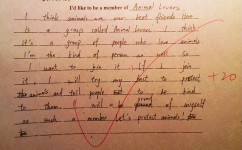 I'd like to be a member of Animal Lovers
I think animals are our best friends. Here
is a group called Animal Lovers. I think
it's a group of people who love animals
I'm the kind of person as well. So
I want to join it. If I join
it, I will try my best to protect
the animals and tell people not to be kind
to them. I will be proud of myself
as such member. Let's protect animals!
+20